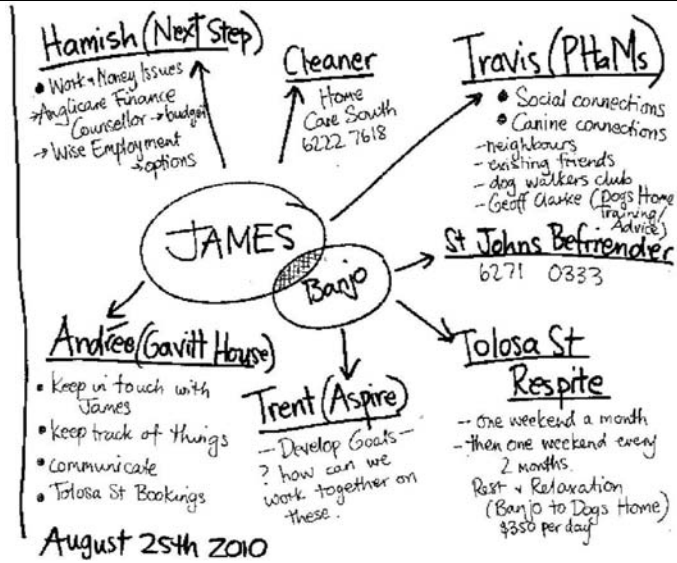 Hamish (Next Step)
• Work & Money Issues
→ Anglicare Finance
Counsellor → budget
→ Wise Employment
→ options
Cleaner
Home
Care South
6222 7618
Travis (PHaMs)
• Social connections
• Canine connections
- neighbours
- existing friends
- dog walkers club
- Geoff Clarke (Dogs Home
Training/
Advice)
JAMES
Banjo
St Johns Befriender
6271 0333
Andree (Gavitt House)
• Keep in touch with
James
• Keep track of things
• communicate
• Tolosa St Bookings
Trent (Aspire)
- Develop Goals -
? how can we
work together on
these.
Tolosa St
Respite
- one weekend a month
- then one weekend every
2 months.
Rest & Relaxation
(Banjo to Dogs Home)
$350 per day
August 25th 2010